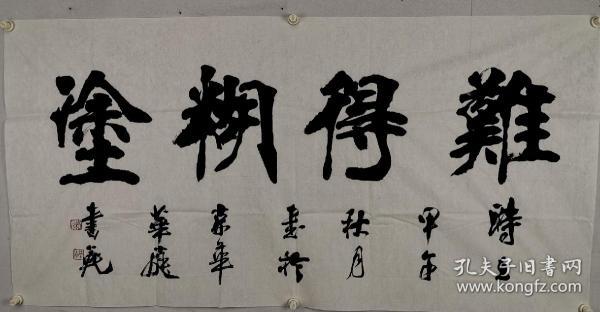 難得糊塗
時在
甲午
秋月
書於
京華
華庭
書苑
孔夫子旧书网
www.kongfz.com